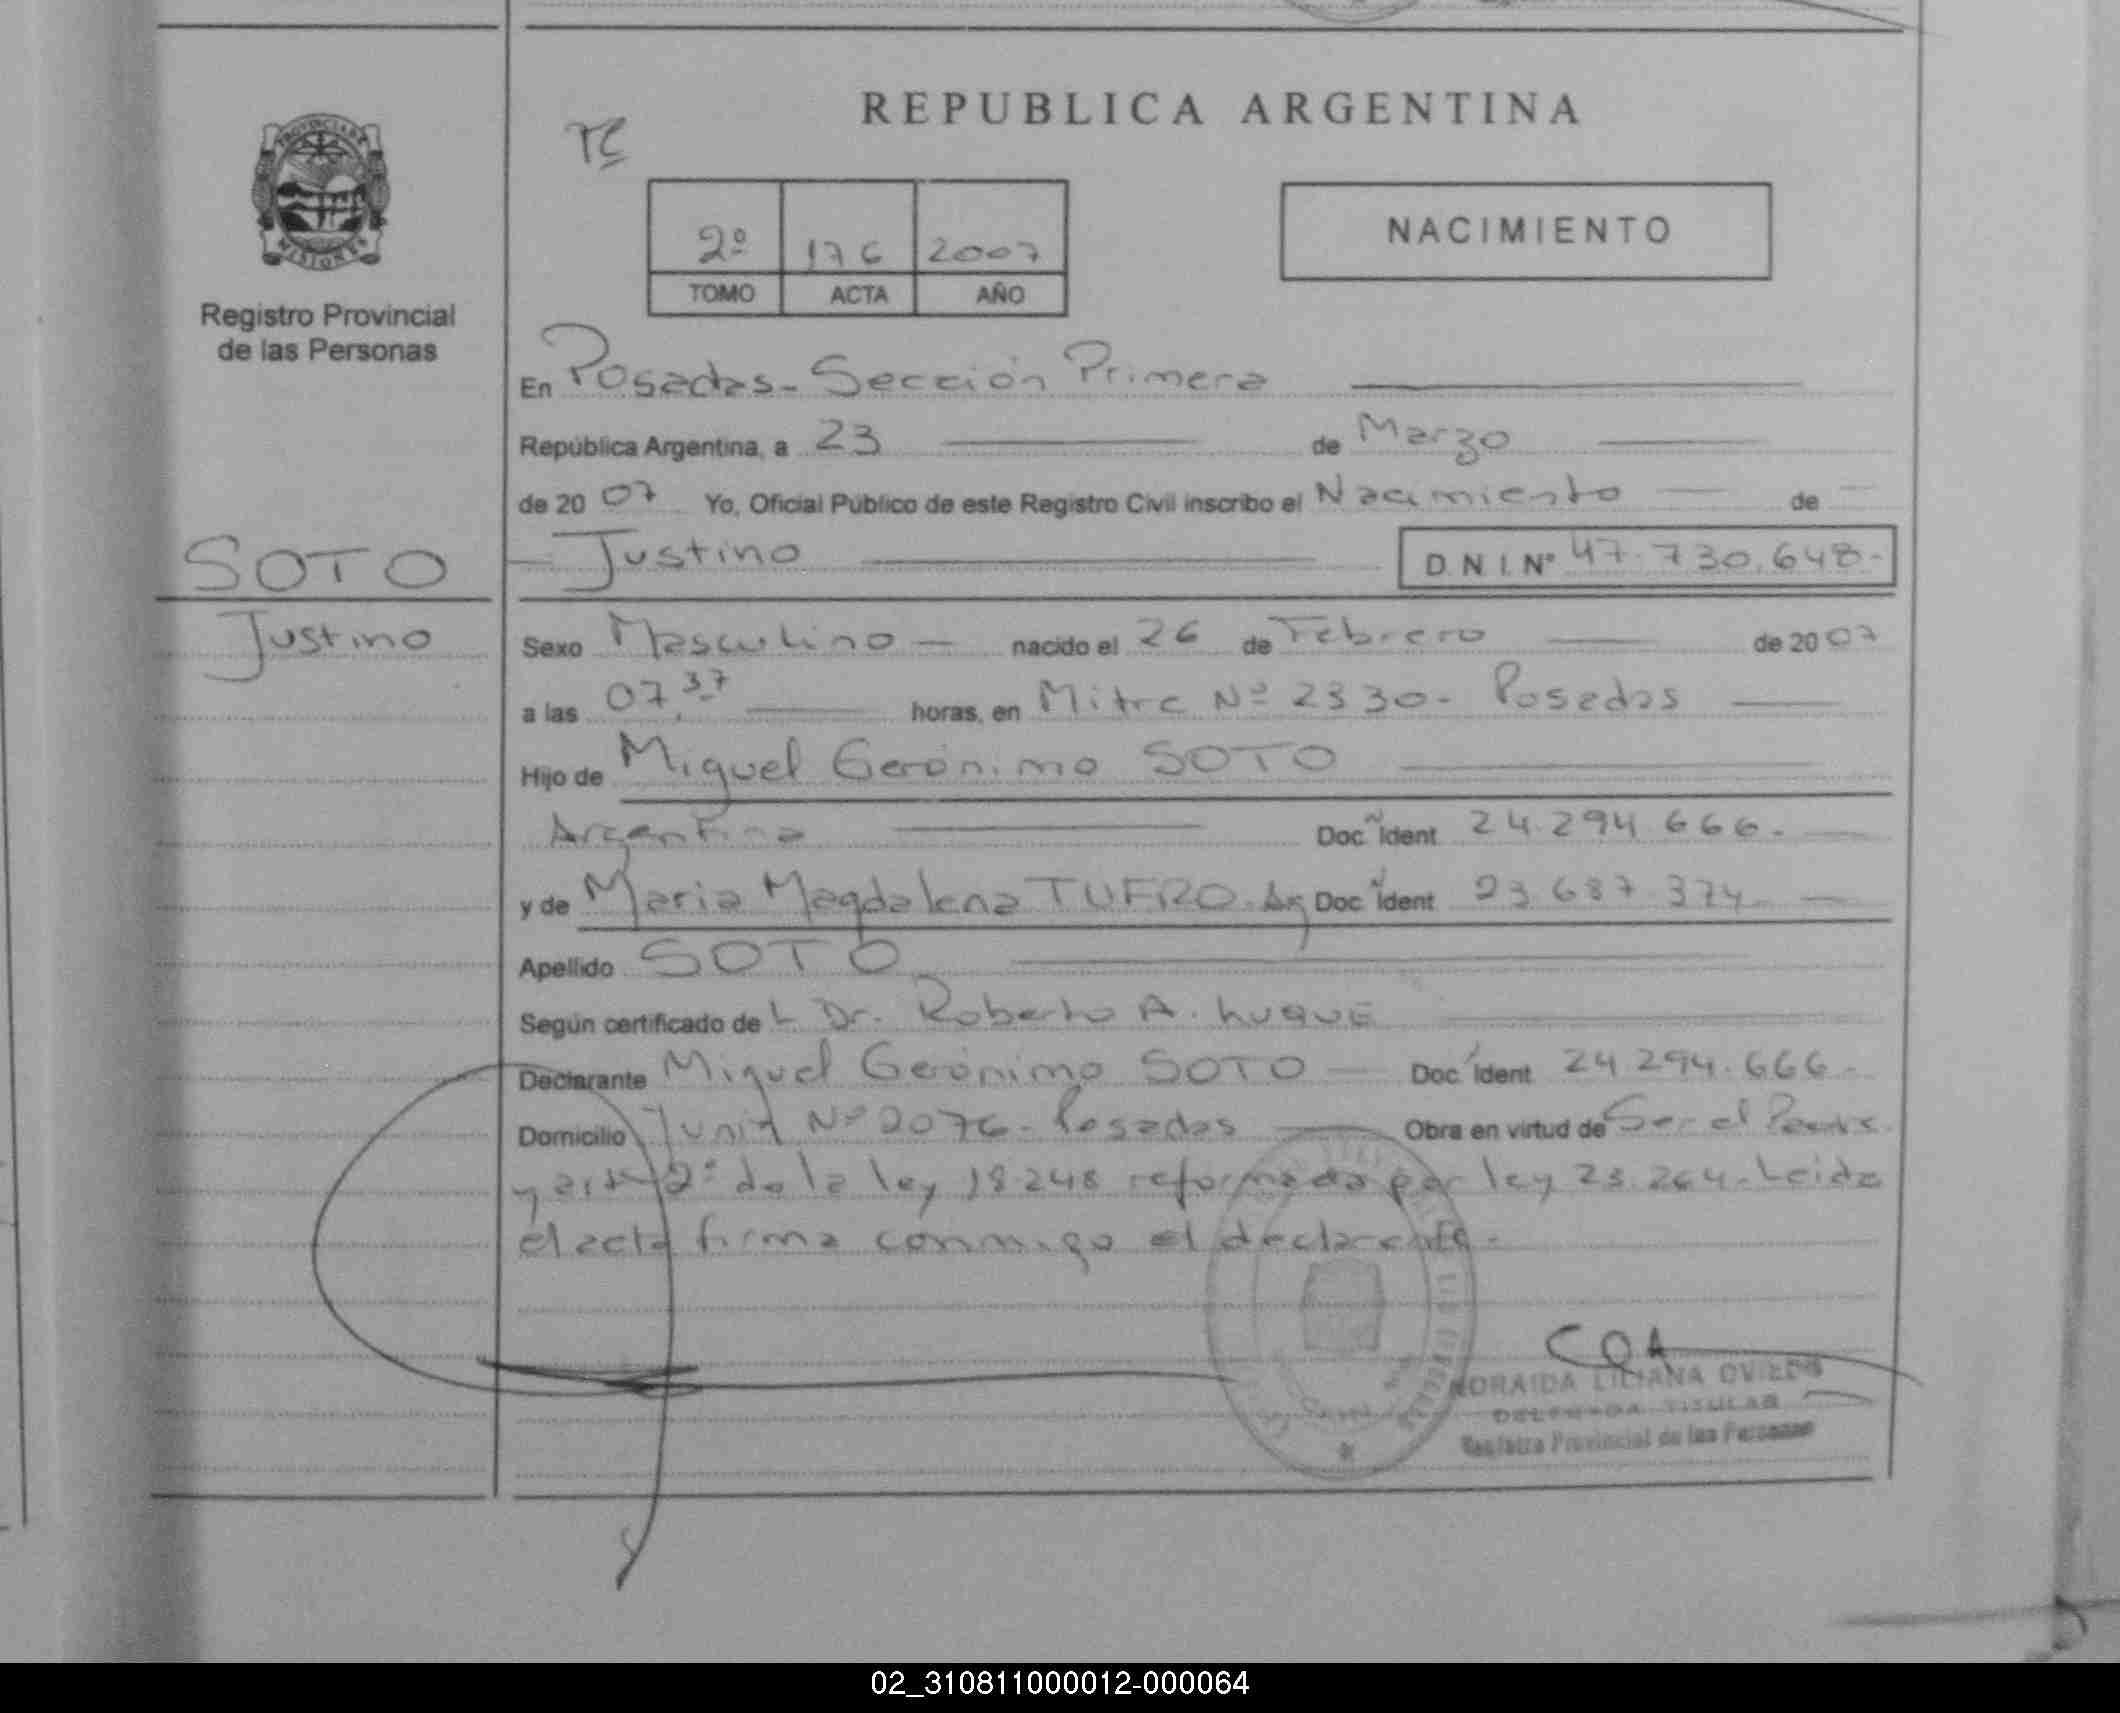 REPUBLICA ARGENTINA
PROVINCIA DE
MISIONES
Registro Provincial
de las Personas
2º 176 2007
TOMO ACTA AÑO
NACIMIENTO
En Posadas - Sección Primera
República Argentina, a 23 de Marzo
de 20 07 Yo, Oficial Público de este Registro Civil inscribo el Nacimiento de
Justino D.N.I. Nº 47.730.648.-
SOTO
Justino
Sexo Masculino nacido el 26 de Febrero de 20 07
a las 07,37 horas, en Mitre Nº 2330 - Posadas
Hijo de Miguel Gerónimo SOTO
Argentina Doc. Ident. 24.294.666.-
y de Maria Magdalena TUFRO. Arg Doc. Ident. 23.687.374
Apellido SOTO
Según certificado de L Dr. Roberto A. Luque
Declarante Miguel Gerónimo SOTO Doc. Ident. 24.294.666.-
Domicilio Junin Nº 2076 - Posadas Obra en virtud de Ser el Padre
y art 2º de la ley 18.248 reformada por ley 23.264. Leida
el acta firma conmigo el declarante.-
LILIANA OVIEDO
DELEGADA TITULAR
Registro Provincial de las Personas
02_310811000012-000064